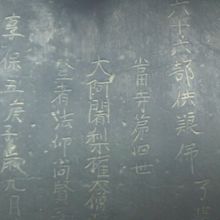 六十六部供養佛
當寺第四世
大阿闍梨權大僧
竪者法印尚賢
享保五庚子歳九月